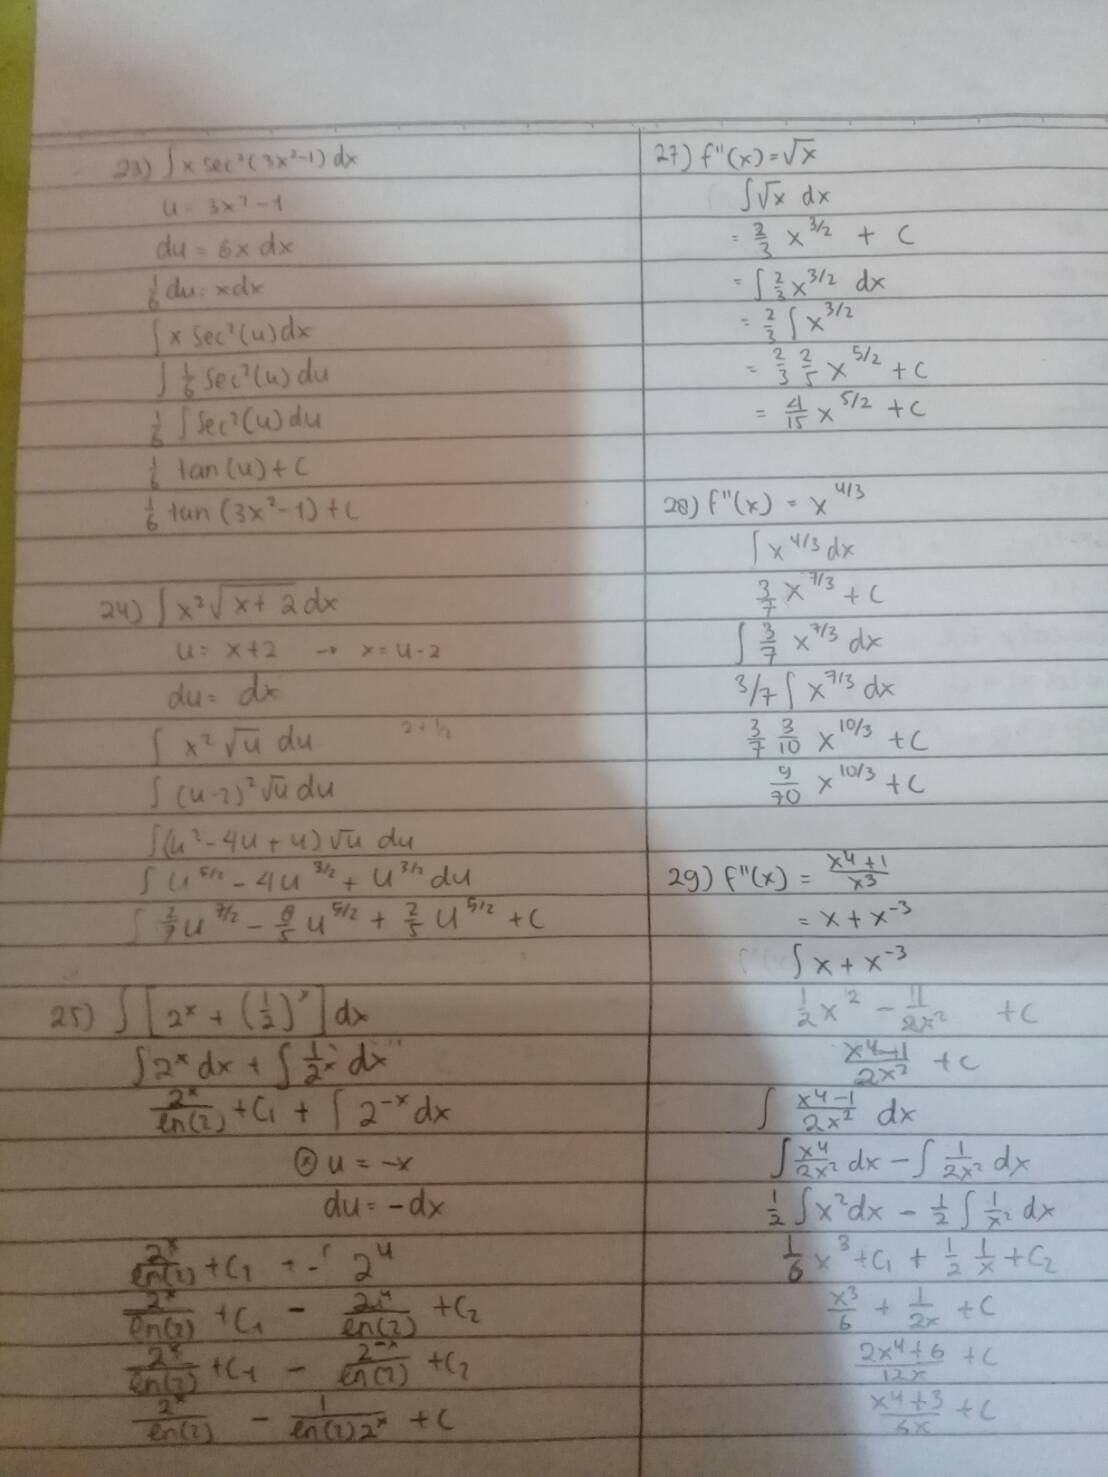 23) ∫ x sec²(3x²-1) dx
u = 3x² - 1
du = 6x dx
1/6 du = x dx
∫ x sec²(u) dx
∫ 1/6 sec²(u) du
1/6 ∫ sec²(u) du
1/6 tan(u) + C
1/6 tan(3x²-1) + C
24) ∫ x²√(x+2) dx
u = x+2 → x = u-2
du = dx
∫ x² √u du 2+1/2
∫ (u-2)² √u du
∫ (u² - 4u + u) √u du
∫ u^5/2 - 4u^3/2 + u^3/2 du
∫ 2/7 u^7/2 - 8/5 u^5/2 + 2/5 u^5/2 + C
25) ∫ [2^x + (1/2)^x] dx
∫ 2^x dx + ∫ 1/2^x dx
2^x/ln(2) + C₁ + ∫ 2^-x dx
u = -x
du = -dx
2^x/ln(2) + C₁ + -∫ 2^u
2^x/ln(2) + C₁ - 2^u/ln(2) + C₂
2^x/ln(2) + C₁ - 2^-x/ln(2) + C₂
2^x/ln(2) - 1/ln(2)2^x + C
27) f"(x) = √x
∫ √x dx
= 2/3 x^3/2 + C
= ∫ 2/3 x^3/2 dx
= 2/3 ∫ x^3/2
= 2/3 2/5 x^5/2 + C
= 4/15 x^5/2 + C
28) f"(x) = x^4/3
∫ x^4/3 dx
3/7 x^7/3 + C
∫ 3/7 x^7/3 dx
3/7 ∫ x^7/3 dx
3/7 3/10 x^10/3 + C
9/70 x^10/3 + C
29) f"(x) = x⁴+1/x³
= x + x^-3
∫ x + x^-3
1/2 x² - 1/2x² + C
x⁴-1/2x² + C
∫ x⁴-1/2x² dx
∫ x⁴/2x² dx - ∫ 1/2x² dx
1/2 ∫ x² dx - 1/2 ∫ 1/x² dx
1/6 x³ + C₁ + 1/2 1/x + C₂
x³/6 + 1/2x + C
2x⁴+6/12x + C
x⁴+3/6x + C